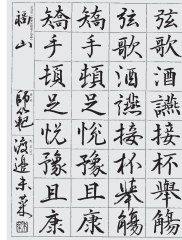 弦歌酒讌接杯舉觴
弦歌酒讌接杯舉觴
矯手頓足悅豫且康
矯手頓足悅豫且康
福山 師範 渡邊